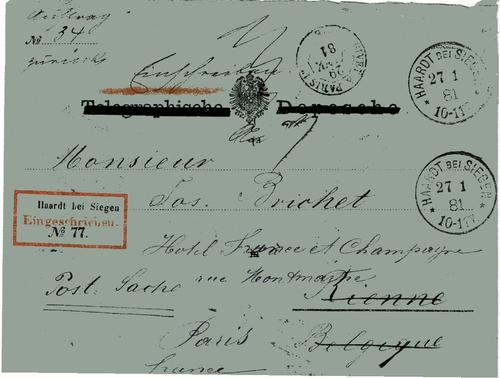 Auftrag
No 34
zurück
Einschreiben
Telegraphische Depesche
PARIS
81
HAARDT BEI SIEGEN
27 1
81
10-11V.
Monsieur
Jos. Brichet
HAARDT BEI SIEGEN
27 1
81
10-11V.
Haardt bei Siegen
Eingeschrieben.
No 77.
Hotel France et Champagne
Post-Sache rue Montmartre
Vienne
Paris Belgique
France